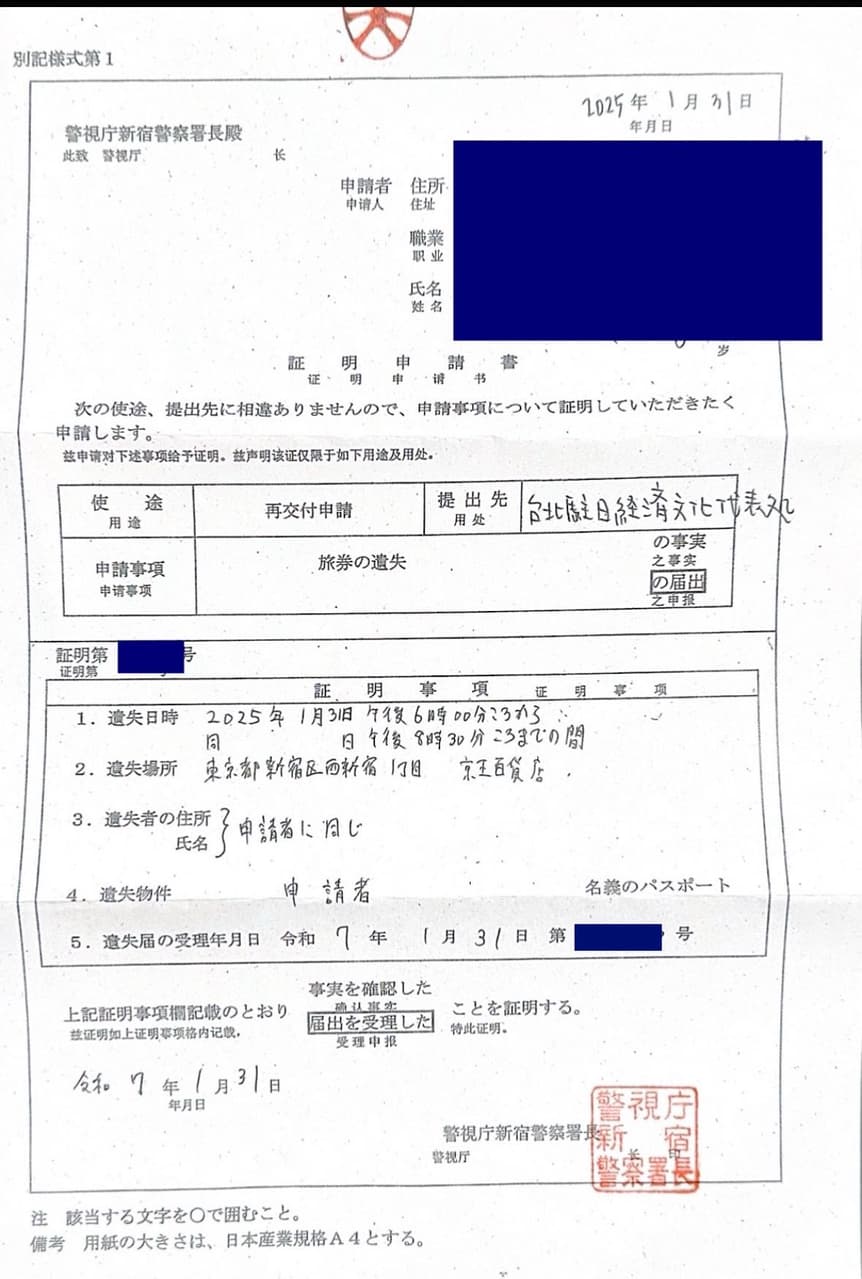 別記様式第1
2025年 1月31日
年月日
警視庁新宿警察署長殿
此致 警視庁 长
申請者 住所
申请人 住址
職業
职业
氏名
姓名
岁
証明申請書
证明申请书
次の使途、提出先に相違ありませんので、申請事項について証明していただきたく
申請します。
兹申请对下述事项给予证明。兹声明该证仅限于如下用途及用处。
使途 再交付申請 提出先 台北駐日経済文化代表処
用途 用处
申請事項 旅券の遺失 の事実
申请事项 之事实
の届出
之申报
証明第 号
证明第
証明事項 证明事项
1．遺失日時 2025年1月31日 午後6時00分ころから
同 日 午後8時30分ころまでの間
2．遺失場所 東京都新宿区西新宿1丁目 京王百貨店
3．遺失者の住所
氏名 申請者に同じ
4．遺失物件 申請者 名義のパスポート
5．遺失届の受理年月日 令和 7 年 1月 31日 第 号
事実を確認した
上記証明事項欄記載のとおり 确认事实 ことを証明する。
兹证明如上证明事项格内记载， 届出を受理した 特此证明。
受理申报
令和 7 年 1月31日
年月日
警視庁新宿警察署長
警视厅 长 印
警視庁
新宿
警察署長
注 該当する文字を〇で囲むこと。
備考 用紙の大きさは、日本産業規格A4とする。